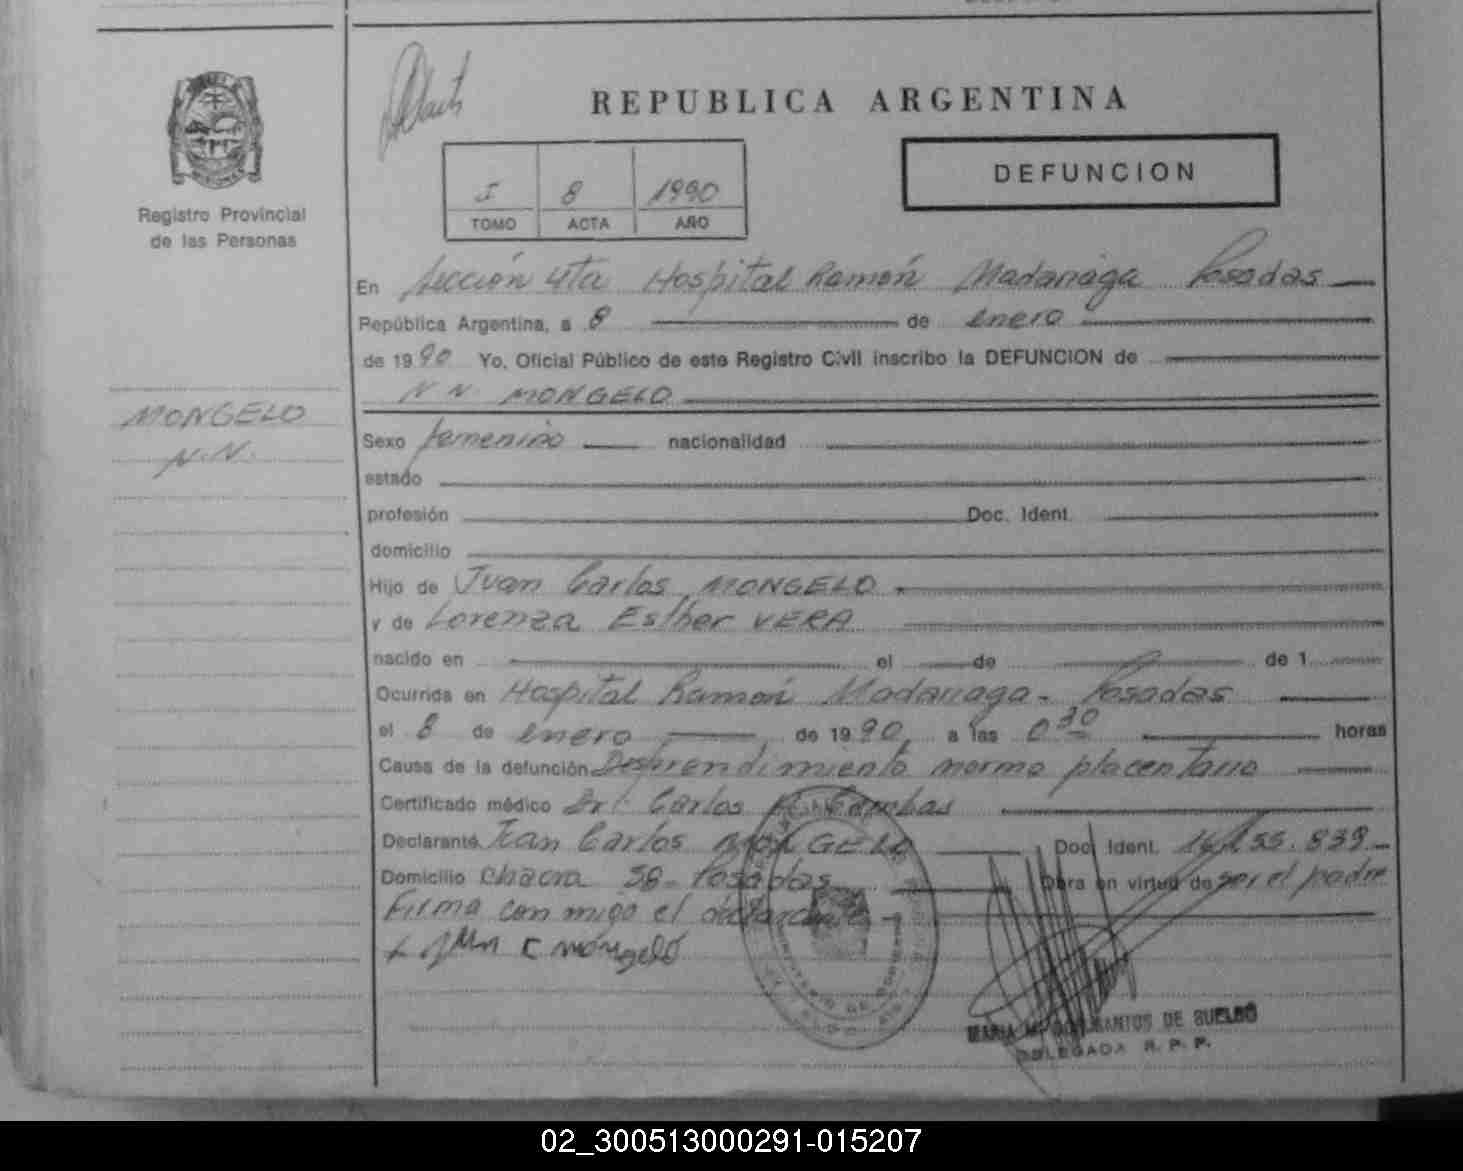 REPUBLICA ARGENTINA
DEFUNCION
I 8 1990
TOMO ACTA AÑO
Registro Provincial
de las Personas
En Sección 4ta Hospital Ramón Madariaga Posadas
República Argentina, a 8 de enero
de 1990 Yo, Oficial Público de este Registro Civil inscribo la DEFUNCION de
N N MONGELO
MONGELO
N.N.
Sexo femenino nacionalidad
estado
profesión Doc. Ident.
domicilio
Hijo de Juan Carlos MONGELO
y de Lorenza Esther VERA
nacido en el de de 1
Ocurrida en Hospital Ramón Madariaga - Posadas
el 8 de enero de 1990 a las 0 30 horas
Causa de la defunción Desprendimiento normo placentario
Certificado médico Dr. Carlos
Declarante Juan Carlos MONGELO Doc. Ident. 839
Domicilio Chacra Posadas Obra en virtud de ser el padre
Firma conmigo el declarante
Juan C mongeló
DE SUELDO
DELEGADA R. P. P.
02_300513000291-015207